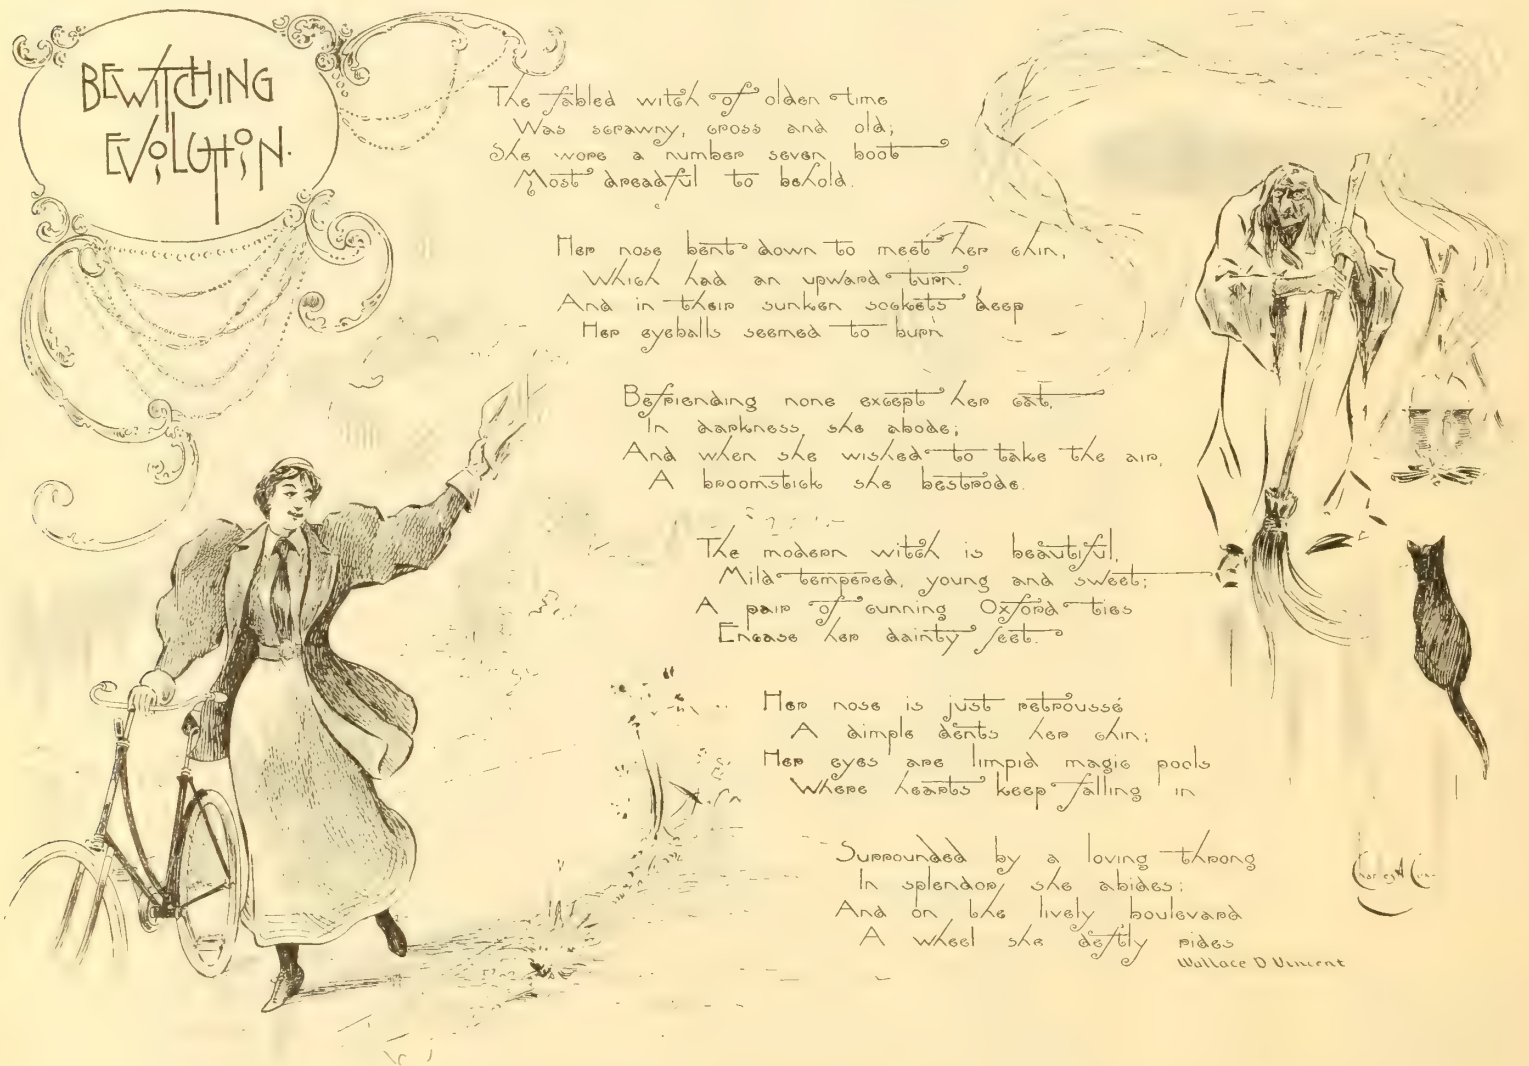 BEWITCHING
EVOLUTION.
The fabled witch of olden time
Was scrawny, cross and old;
She wore a number seven boot
Most dreadful to behold.
Her nose bent down to meet her chin,
Which had an upward turn.
And in their sunken sockets deep
Her eyeballs seemed to burn
Befriending none except her cat,
In darkness she abode;
And when she wished to take the air,
A broomstick she bestrode.
The modern witch is beautiful,
Mild tempered, young and sweet;
A pair of cunning Oxford ties
Encase her dainty feet.
Her nose is just retroussé
A dimple dents her chin;
Her eyes are limpid magic pools
Where hearts keep falling in
Surrounded by a loving throng
In splendor, she abides;
And on the lively boulevard
A wheel she deftly rides
Wallace D Vincent
Charles A